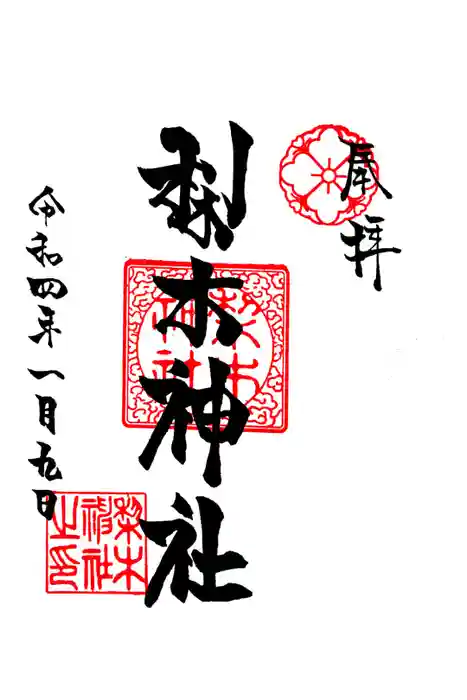 奉拝
梨木神社
梨木神社
令和四年一月九日
梨木神社之印